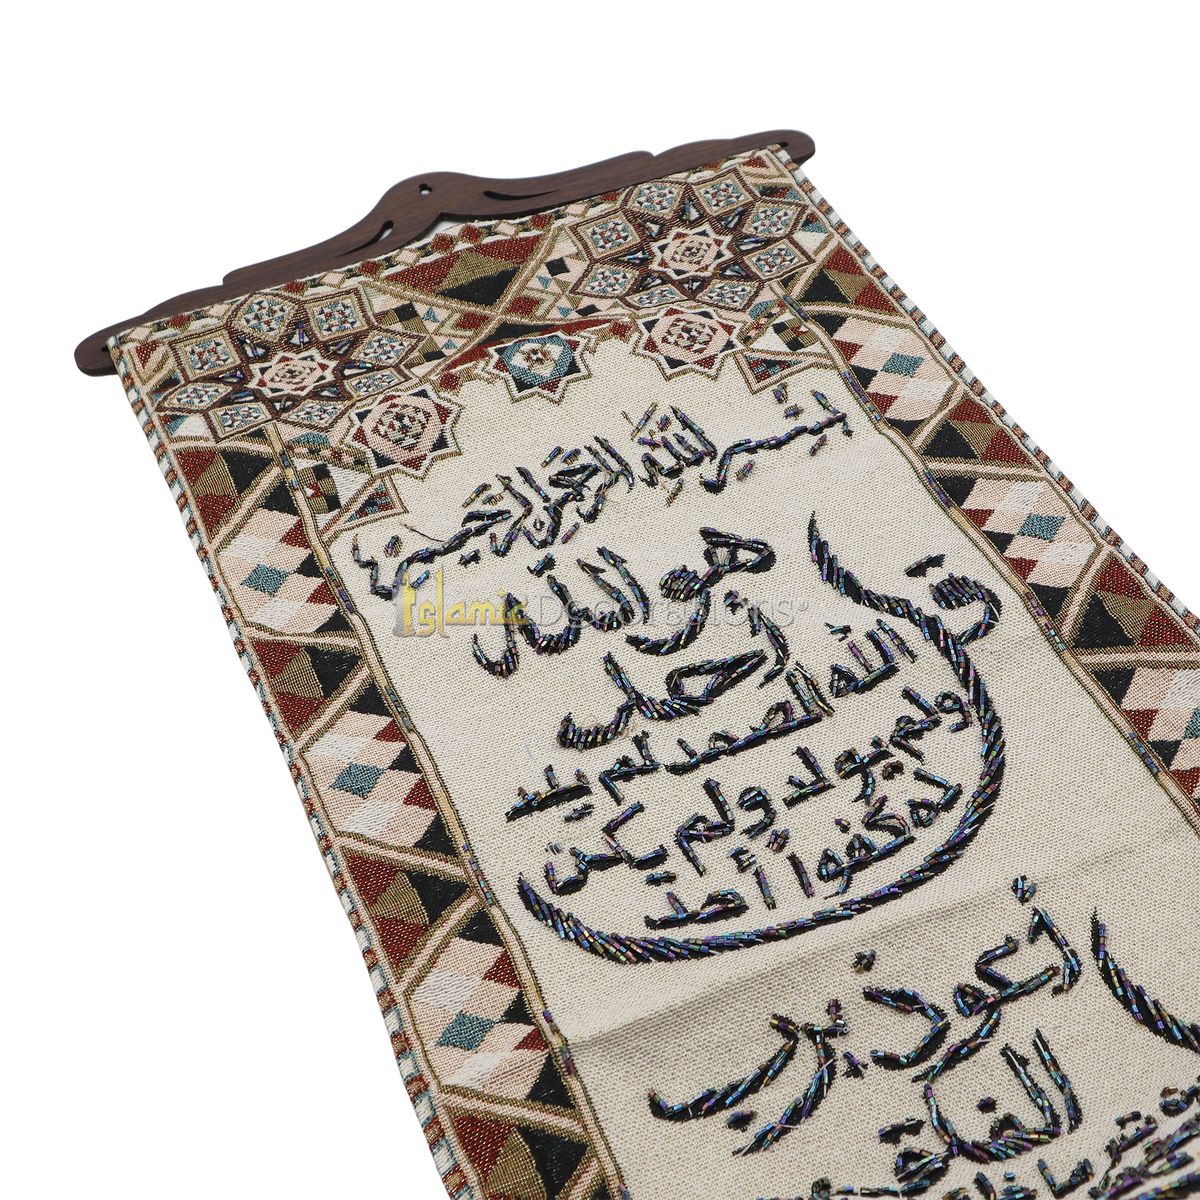 بسم الله الرحمن الرحيم
قل هو الله
أحد
الله الصمد لم يلد
ولم يولد ولم يكن
له كفوا أحد
Islamic Decorations®
أعوذ برب
الفلق